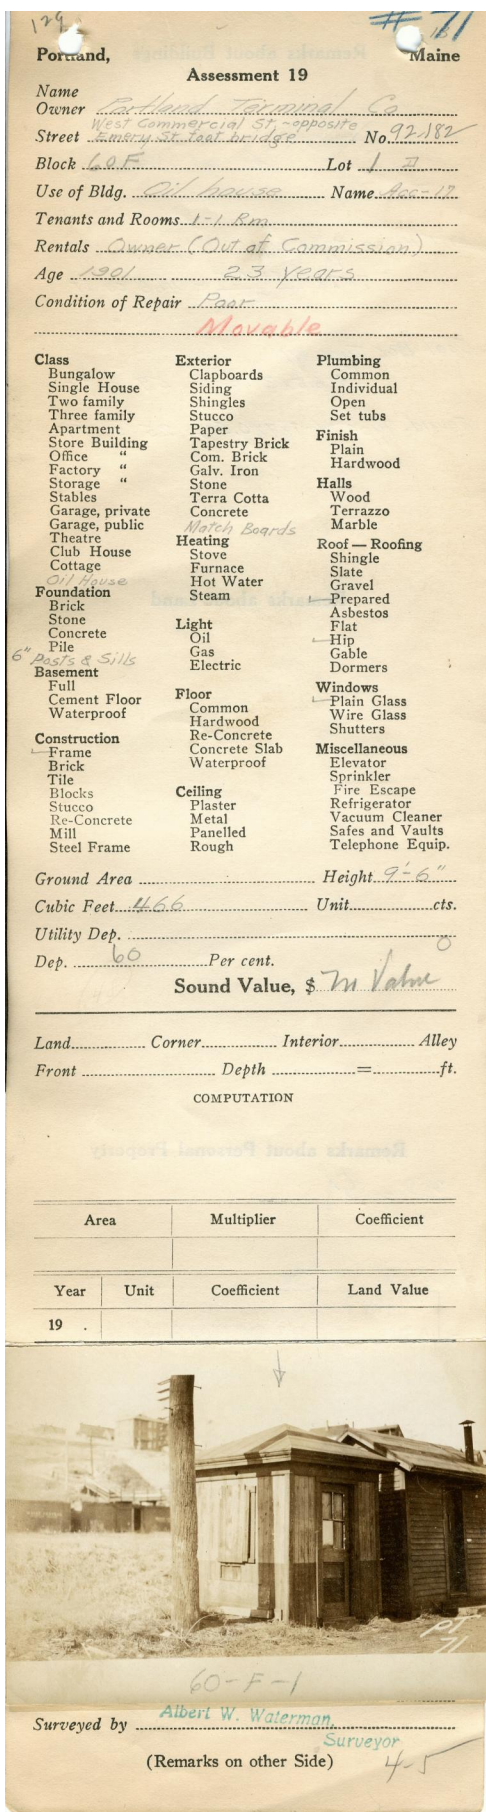 129
#71
Portland, Maine
Assessment 19
Name
Owner Portland Terminal Co
West Commercial St,-opposite
Street Emery St foot bridge No 92-182
Block 60F Lot 1
Use of Bldg. Oil house Name Acc-17
Tenants and Rooms 1-1 Rm
Rentals Owner (Out of Commission)
Age 1901 23 years
Condition of Repair Poor
Movable
Class
Bungalow
Single House
Two family
Three family
Apartment
Store Building
Office "
Factory "
Storage "
Stables
Garage, private
Garage, public
Theatre
Club House
Cottage
Oil House
Foundation
Brick
Stone
Concrete
Pile
6" Posts & Sills
Basement
Full
Cement Floor
Waterproof
Construction
Frame
Brick
Tile
Blocks
Stucco
Re-Concrete
Mill
Steel Frame
Exterior
Clapboards
Siding
Shingles
Stucco
Paper
Tapestry Brick
Com. Brick
Galv. Iron
Stone
Terra Cotta
Concrete
Match Boards
Heating
Stove
Furnace
Hot Water
Steam
Light
Oil
Gas
Electric
Floor
Common
Hardwood
Re-Concrete
Concrete Slab
Waterproof
Ceiling
Plaster
Metal
Panelled
Rough
Plumbing
Common
Individual
Open
Set tubs
Finish
Plain
Hardwood
Halls
Wood
Terrazzo
Marble
Roof — Roofing
Shingle
Slate
Gravel
Prepared
Asbestos
Flat
Hip
Gable
Dormers
Windows
Plain Glass
Wire Glass
Shutters
Miscellaneous
Elevator
Sprinkler
Fire Escape
Refrigerator
Vacuum Cleaner
Safes and Vaults
Telephone Equip.
Ground Area Height 9'-6"
Cubic Feet 466 Unit cts.
Utility Dep. 0
Dep. 60 Per cent.
Sound Value, $ Value
Land Corner Interior Alley
Front Depth = ft.
COMPUTATION
Area Multiplier Coefficient
Year Unit Coefficient Land Value
19 .
PT
71
60-F-1
Surveyed by Albert W. Waterman,
Surveyor
(Remarks on other Side)
4-5